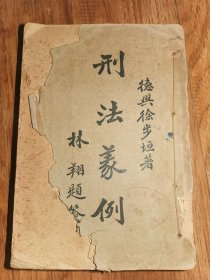 德興徐步垣著
刑法義例
林翔題簽